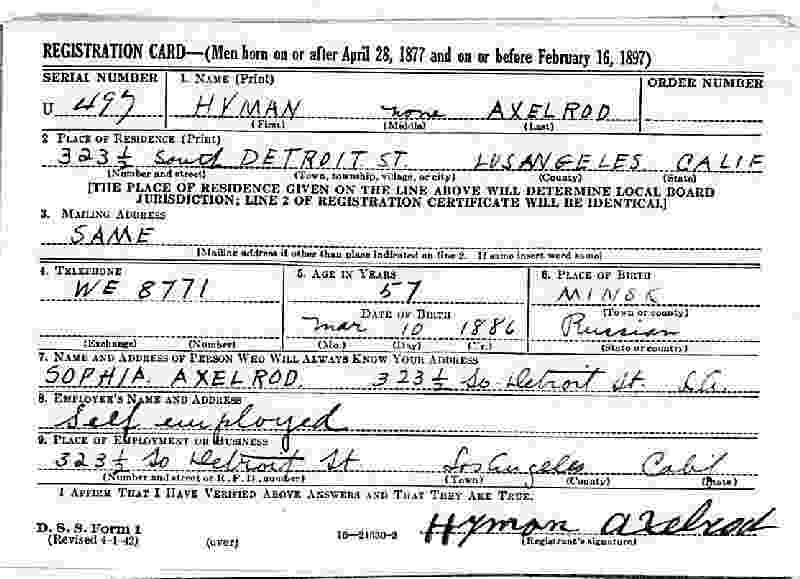 REGISTRATION CARD—(Men born on or after April 28, 1877 and on or before February 16, 1897)
SERIAL NUMBER 1. NAME (Print) ORDER NUMBER
U 497 HYMAN none AXELROD
(First) (Middle) (Last)
2 PLACE OF RESIDENCE (Print)
323½ South DETROIT ST. LOS ANGELES CALIF
(Number and street) (Town, township, village, or city) (County) (State)
[THE PLACE OF RESIDENCE GIVEN ON THE LINE ABOVE WILL DETERMINE LOCAL BOARD
JURISDICTION; LINE 2 OF REGISTRATION CERTIFICATE WILL BE IDENTICAL]
3. MAILING ADDRESS
SAME
[Mailing address if other than place indicated on line 2. If same insert word same]
4. TELEPHONE 5. AGE IN YEARS 6. PLACE OF BIRTH
WE 8771 57 MINSK
DATE OF BIRTH (Town or county)
Mar 10 1886 Russian
(Exchange) (Number) (Mo.) (Day) (Yr.) (State or country)
7. NAME AND ADDRESS OF PERSON WHO WILL ALWAYS KNOW YOUR ADDRESS
SOPHIA AXELROD. 323½ So Detroit St. L.A.
8. EMPLOYER'S NAME AND ADDRESS
Self employed
9. PLACE OF EMPLOYMENT OR BUSINESS
323½ So Detroit St Los Angeles Calif
(Number and street or R. F. D. number) (Town) (County) (State)
I AFFIRM THAT I HAVE VERIFIED ABOVE ANSWERS AND THAT THEY ARE TRUE.
D. S. S. Form 1
(Revised 4-1-42) (over) 16—21630-2 Hyman Axelrod
(Registrant's signature)